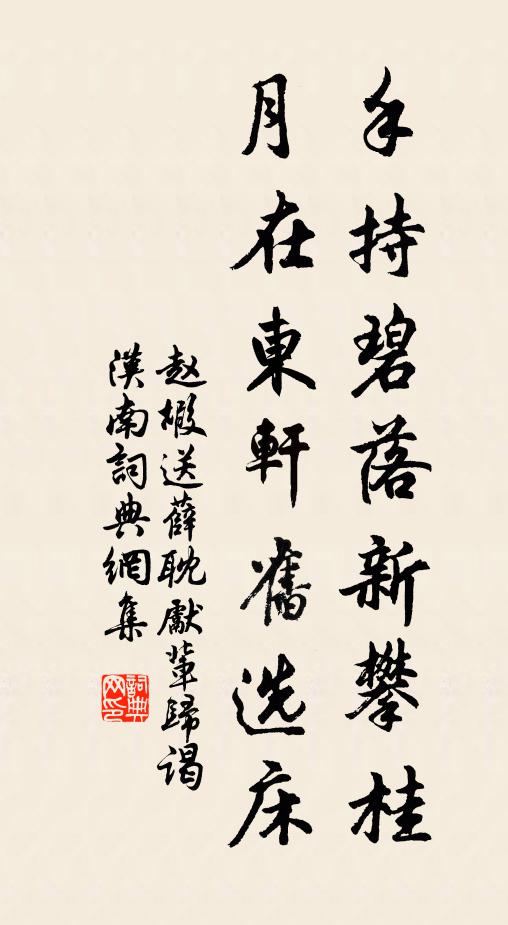 手持碧落新攀桂
月在東軒舊选床
赵嘏送薛耽獻輩歸谒
漢南詞典網集
詞典网印